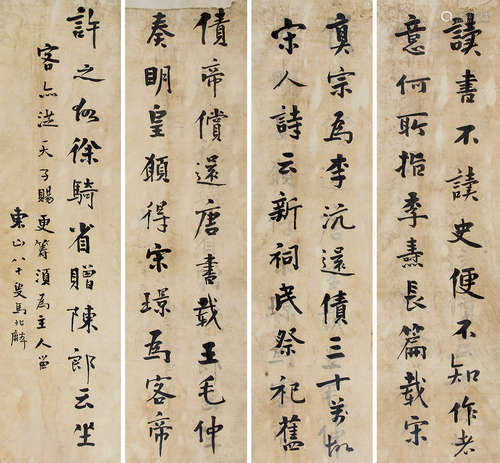 讀書不讀史便不知作者
意何所指李燾長篇載宋
真宗為李沆還債三十萬故
宋人詩云新祠民祭祀舊
債帝償還唐書載王毛仲
奏明皇願得宋璟為客帝
許之故徐騎省贈陳郎云坐
客亦從天子賜更籌須為主人留
東山八十叟馬北麟